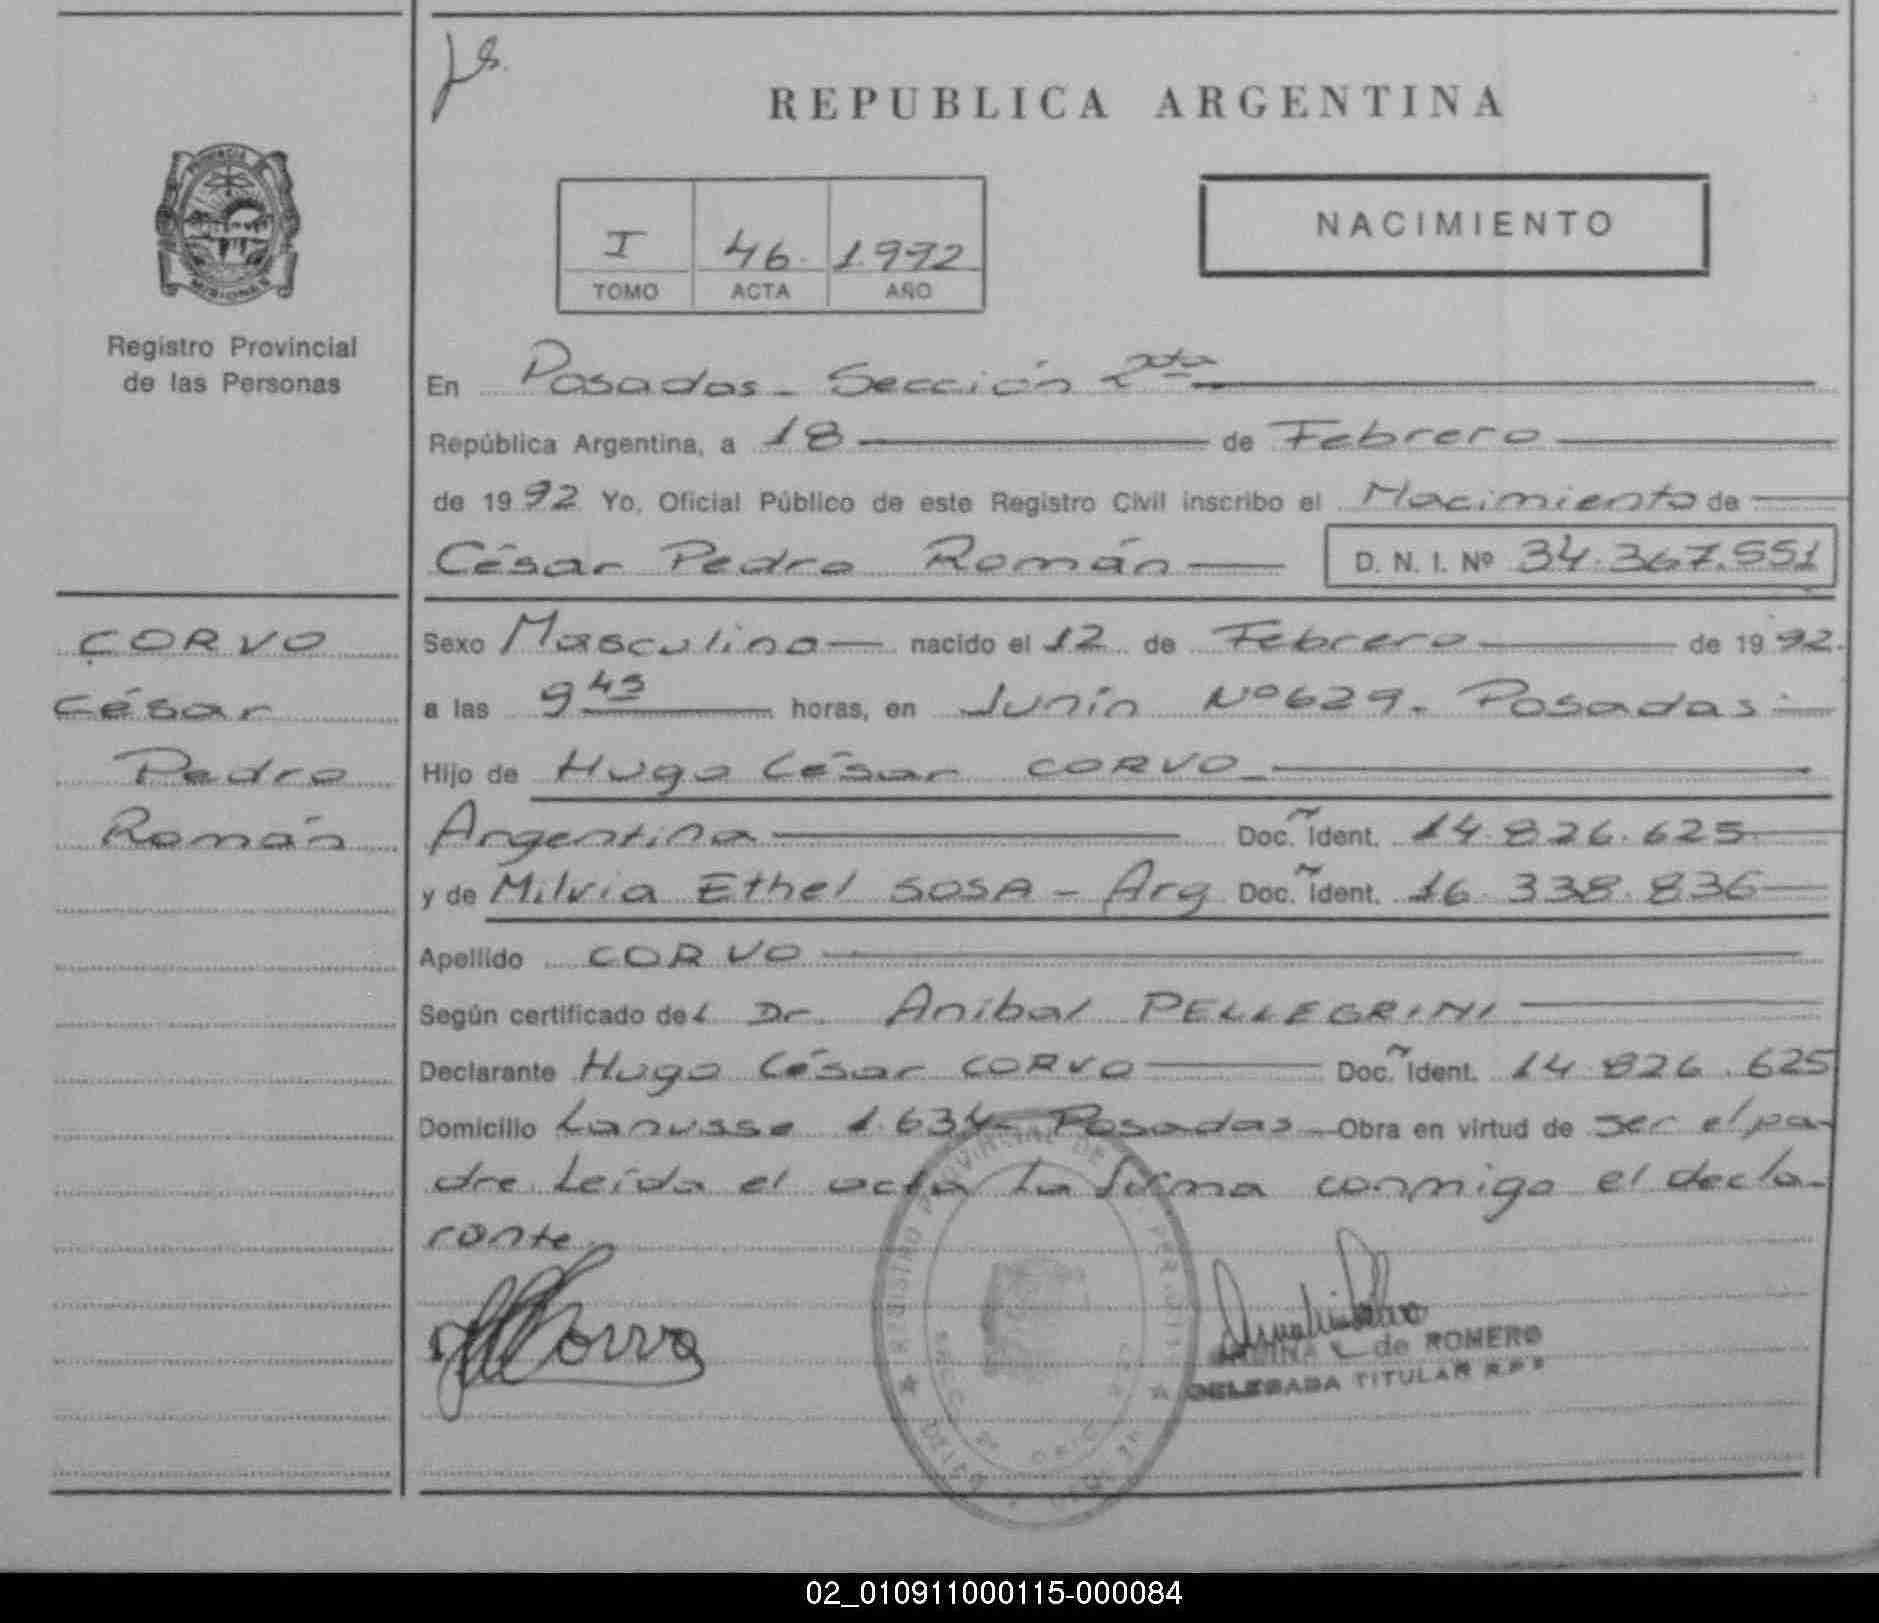 REPUBLICA ARGENTINA
PROVINCIA
MISIONES
Registro Provincial
de las Personas
I 46. 1.992
TOMO ACTA AÑO
NACIMIENTO
En Posadas - Sección 2da
República Argentina, a 18 de Febrero
de 1992 Yo, Oficial Público de este Registro Civil inscribo el Nacimiento de
César Pedro Román D. N. I. Nº 34.367.551
CORVO
César
Pedro
Román
Sexo Masculino nacido el 12 de Febrero de 1992.
a las 9 45 horas, en Junín Nº 629. Posadas.
Hijo de Hugo César CORVO
Argentina Doc. Ident. 14.826.625
y de Milvia Ethel SOSA - Arg Doc. Ident. 16.338.836
Apellido CORVO
Según certificado del Dr. Anibal PELLEGRINI
Declarante Hugo César CORVO Doc. Ident. 14.826.625
Domicilio Lanusse 1.634 - Posadas - Obra en virtud de ser el pa-
dre Leída el acta La firma conmigo el decla-
rante.
Corvo
de ROMERO
DELEGADA TITULAR R.P.P
02_010911000115-000084